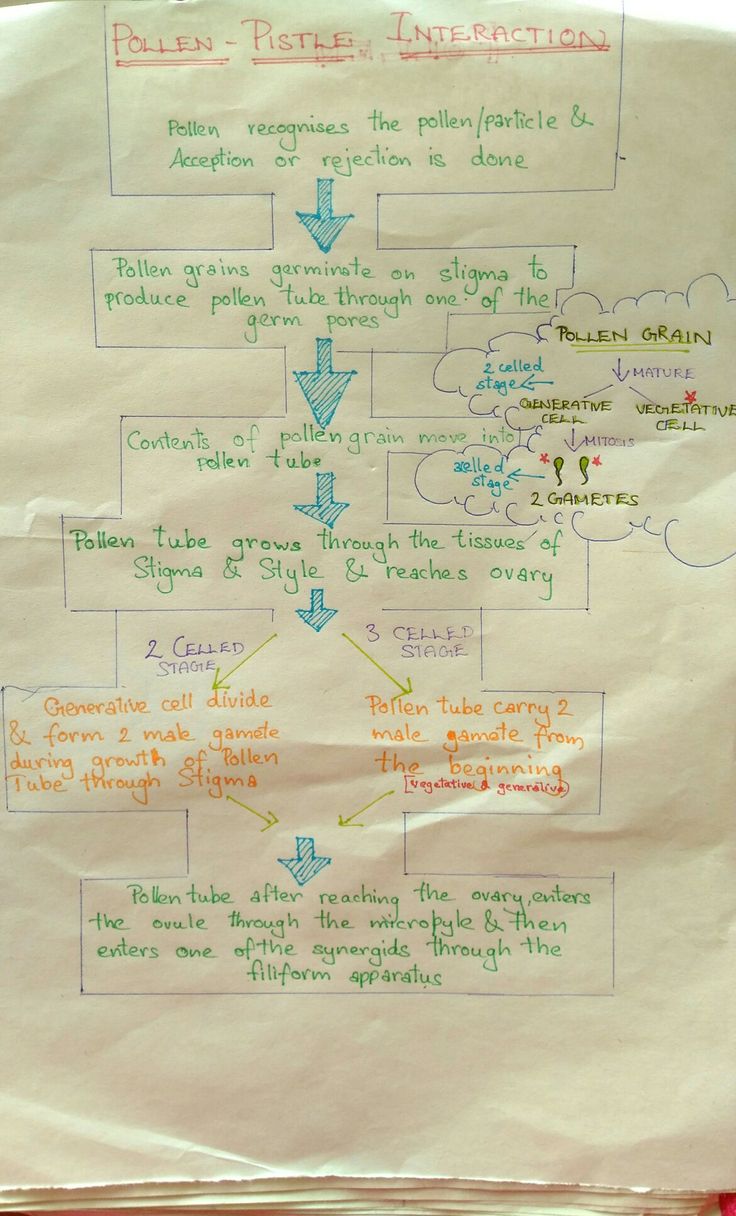 POLLEN - PISTLE INTERACTION
Pollen recognises the pollen/particle &
Acception or rejection is done
Pollen grains germinate on stigma to
produce pollen tube through one of the
germ pores
POLLEN GRAIN
MATURE
2 celled
stage
GENERATIVE
CELL
VEGETATIVE
CELL
MITOSIS
3celled
stage
2 GAMETES
Contents of pollen grain move into
pollen tube
Pollen tube grows through the tissues of
Stigma & Style & reaches ovary
2 CELLED
STAGE
3 CELLED
STAGE
Generative cell divide
& form 2 male gamete
during growth of Pollen
Tube through Stigma
Pollen tube carry 2
male gamate from
the beginning
[vegetative & generative)
Pollen tube after reaching the ovary, enters
the ovule through the micropyle & then
enters one of the synergids through the
filiform apparatus